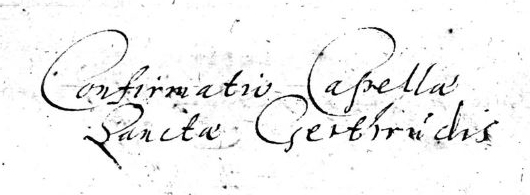 Confirmatio Capellæ
Sanctæ Gerthrúdis